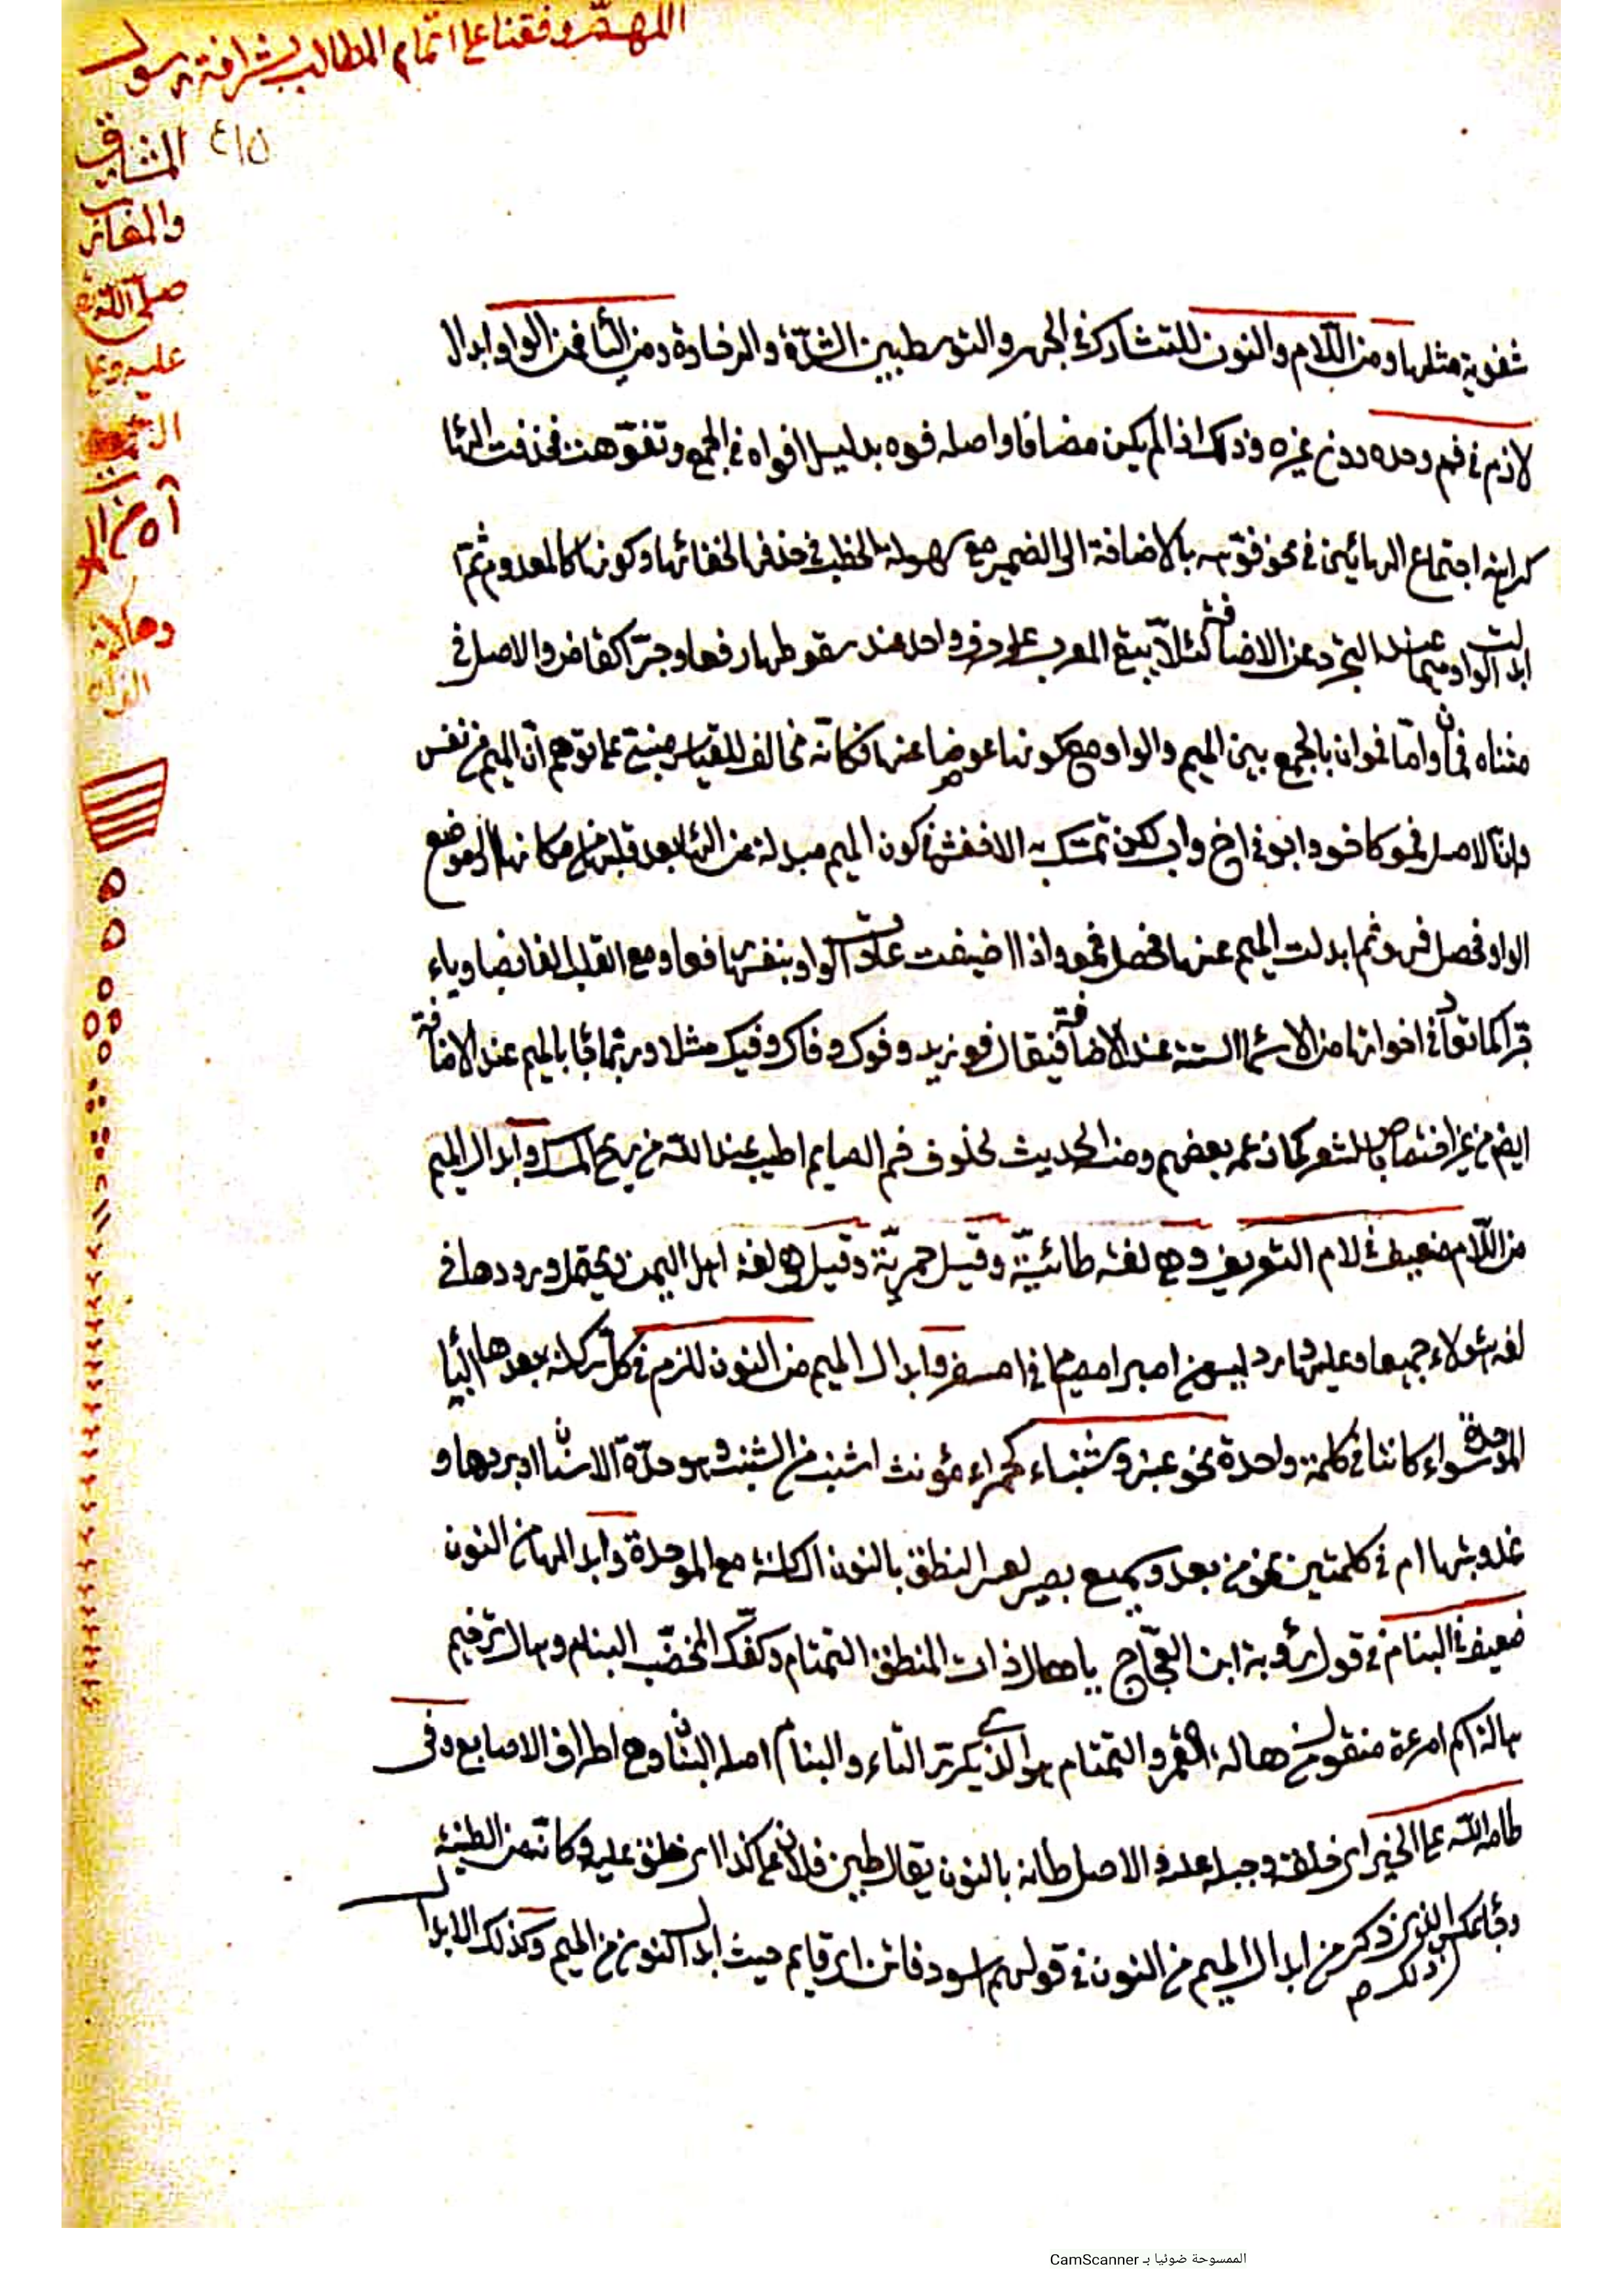 اللهمّ وفقنا على اتمام المطالب بشرافة رسول
المشارق
والمغارب
صلى الله
عليه وعلى
٤١٥
شفوية مثلها ومن اللّام والنون للتشارك في الجهر والتوسط بين الشدّة والرخاوة ومن الياء فمن الواو ابدال
لازم في فم وحده دون غيره وذلك اذا لم يكن مضافا واصله فوه بدليل افواه في الجمع وتفوّهت فحذفت الهاء
كراهة اجتماع الهائين في نحو فوهه بالاضافة الى الضمير مع سهولة الخطب في حذفها لخفائها وكونها كالمعدوم ثمّ
ابدلت الواو ميما عند التجرد عن الاضافة لئلّا يبقى المعرب على حرف واحد عند سقوطها رفعا وجرّا كقاض والاصل في
مثناه فمان وامّا فموان بالجمع بين الميم والواو مع كونها عوضا عنها فكانّه مخالف للقياس مبنيّ على توهم انّ الميم من نفس
وانّ الاصل فمو كاخو وابو في اخ واب لكن تمسّك به الاخفش في كون الميم مبدلة من الهاء بعد قلبها من مكانها الى موضع
الواو فحصل فهو ثم ابدلت الميم عنها فحصل فمو واذا اضيفت عادت الواو بنفسها رفعا ومع القلب الفا نصبا وياء
جرّا كما تقرّر في اخواتها من الاسماء الستة عند الاضافة فيقال فو زيد وفوك وفاك وفيك مثلا وربّما جاء بالميم عند الاضافة
ايضا من غير اختصاص بالشعر كما زعمه بعضهم ومنه الحديث لخلوف فم الصايم اطيب عند الله من ريح المسك وابدال الميم
من اللّام ضعيف في لام التعريف وهي لغة طائيّة وقيل حميريّة وقيل هي لغة اهل اليمن ويحتمل ورودها في
لغة هؤلاء جميعا وعليها ورد ليس من امبر امصيام في امسفر وابدال الميم من النون للزم في كلّ ساكنة بعدها الباء
الموحدة سواء كانتا في كلمة واحدة نحو عنبر وشنباء كحمراء مؤنث اشنب من الشنب وهو حدّة الاسنان او بردها و
عذوبتها ام في كلمتين نحو من بعد وسميع بصير لعسر النطق بالنون الساكنة مع الموحدة وابدالها من النون
ضعيف في البنام في قول رؤبة ابن العجّاج يا هال ذات المنطق التمتام وكفّك المخضّب البنام وهال ترخيم
هالة اسم امرءة منقول من هالة القمر والتمتام هو الذي يكرّر التاء والبنام اصله البنان وهي اطراف الاصابع وفي
طامه الله على الخير اى خلقه وجبله عليه والاصل طانه بالنون يقال طين فلان على كذا اى خلق عليه وكانّه من الطينة
وجاء عكس الذي ذكر من ابدال الميم من النون في قولهم اسود قاتن اى قاتم حيث ابدل النون من الميم وكذلك الابدال
الممسوحة ضوئيا بـ CamScanner